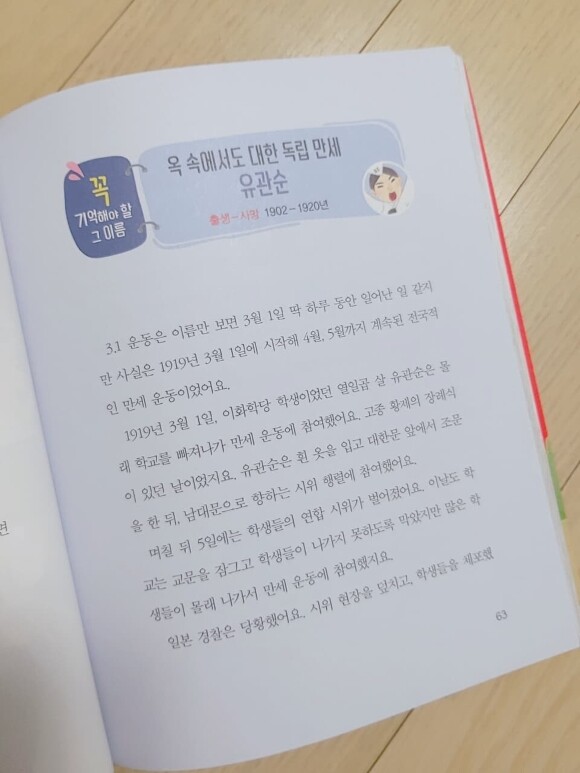 꼭
기억해야 할
그 이름
옥 속에서도 대한 독립 만세
유관순
출생-사망 1902-1920년
3.1 운동은 이름만 보면 3월 1일 딱 하루 동안 일어난 일 같지
만 사실은 1919년 3월 1일에 시작해 4월, 5월까지 계속된 전국적
인 만세 운동이었어요.
1919년 3월 1일, 이화학당 학생이었던 열일곱 살 유관순은 몰
래 학교를 빠져나가 만세 운동에 참여했어요. 고종 황제의 장례식
이 있던 날이었지요. 유관순은 흰 옷을 입고 대한문 앞에서 조문
을 한 뒤, 남대문으로 향하는 시위 행렬에 참여했어요.
며칠 뒤 5일에는 학생들의 연합 시위가 벌어졌어요. 이날도 학
교는 교문을 잠그고 학생들이 나가지 못하도록 막았지만 많은 학
생들이 몰래 나가서 만세 운동에 참여했지요.
일본 경찰은 당황했어요. 시위 현장을 덮치고, 학생들을 체포했
63
면